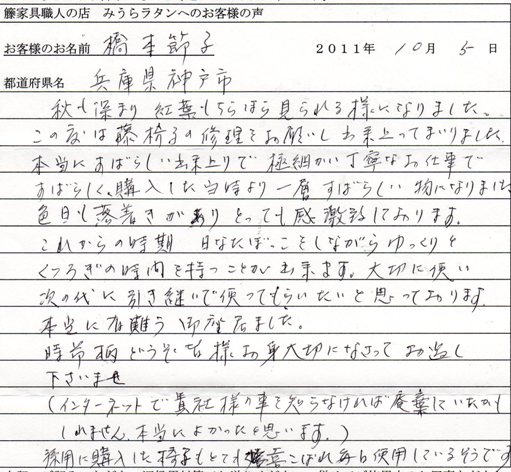 籐家具職人の店 みうらラタンへのお客様の声
お客様のお名前 橋本節子 2011年 10月 5日
都道府県名 兵庫県神戸市
秋も深まり 紅葉もちらほら見られる様になりました。
この度は藤椅子の修理をお願いし 出来上ってまいりました
本当にすばらしい出来上りで 極細かい丁寧なお仕事で
すばらしく、購入した当時より 一層 すばらしい 物になりました
色目も落着きがあり とっても感激致しております。
これからの時期 日なたぼっこをしながら ゆっくりと
くつろぎの時間を持つことが出来ます。大切に使い
次の代に引き継いで使ってもらいたいと思っております。
本当に有難う御座居ました。
時節柄どうぞ皆様お身大切になさって お過し
下さいませ
(インターネットで貴社様の事を知らなければ廃棄していたかも
しれません、本当によかったと思います。)
購入した椅子もとても 毎日使用しているそうです